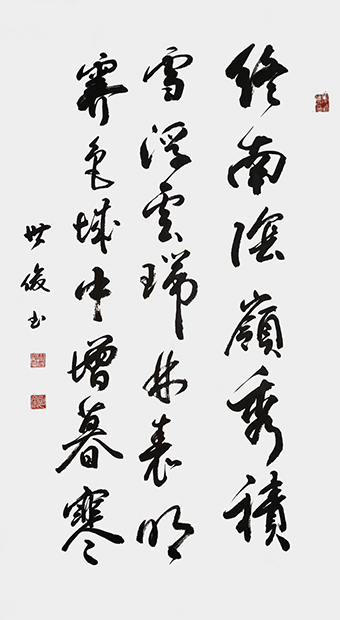 終南陰嶺秀積
雪浮雲端林表明
霽色城中增暮寒
世俊书